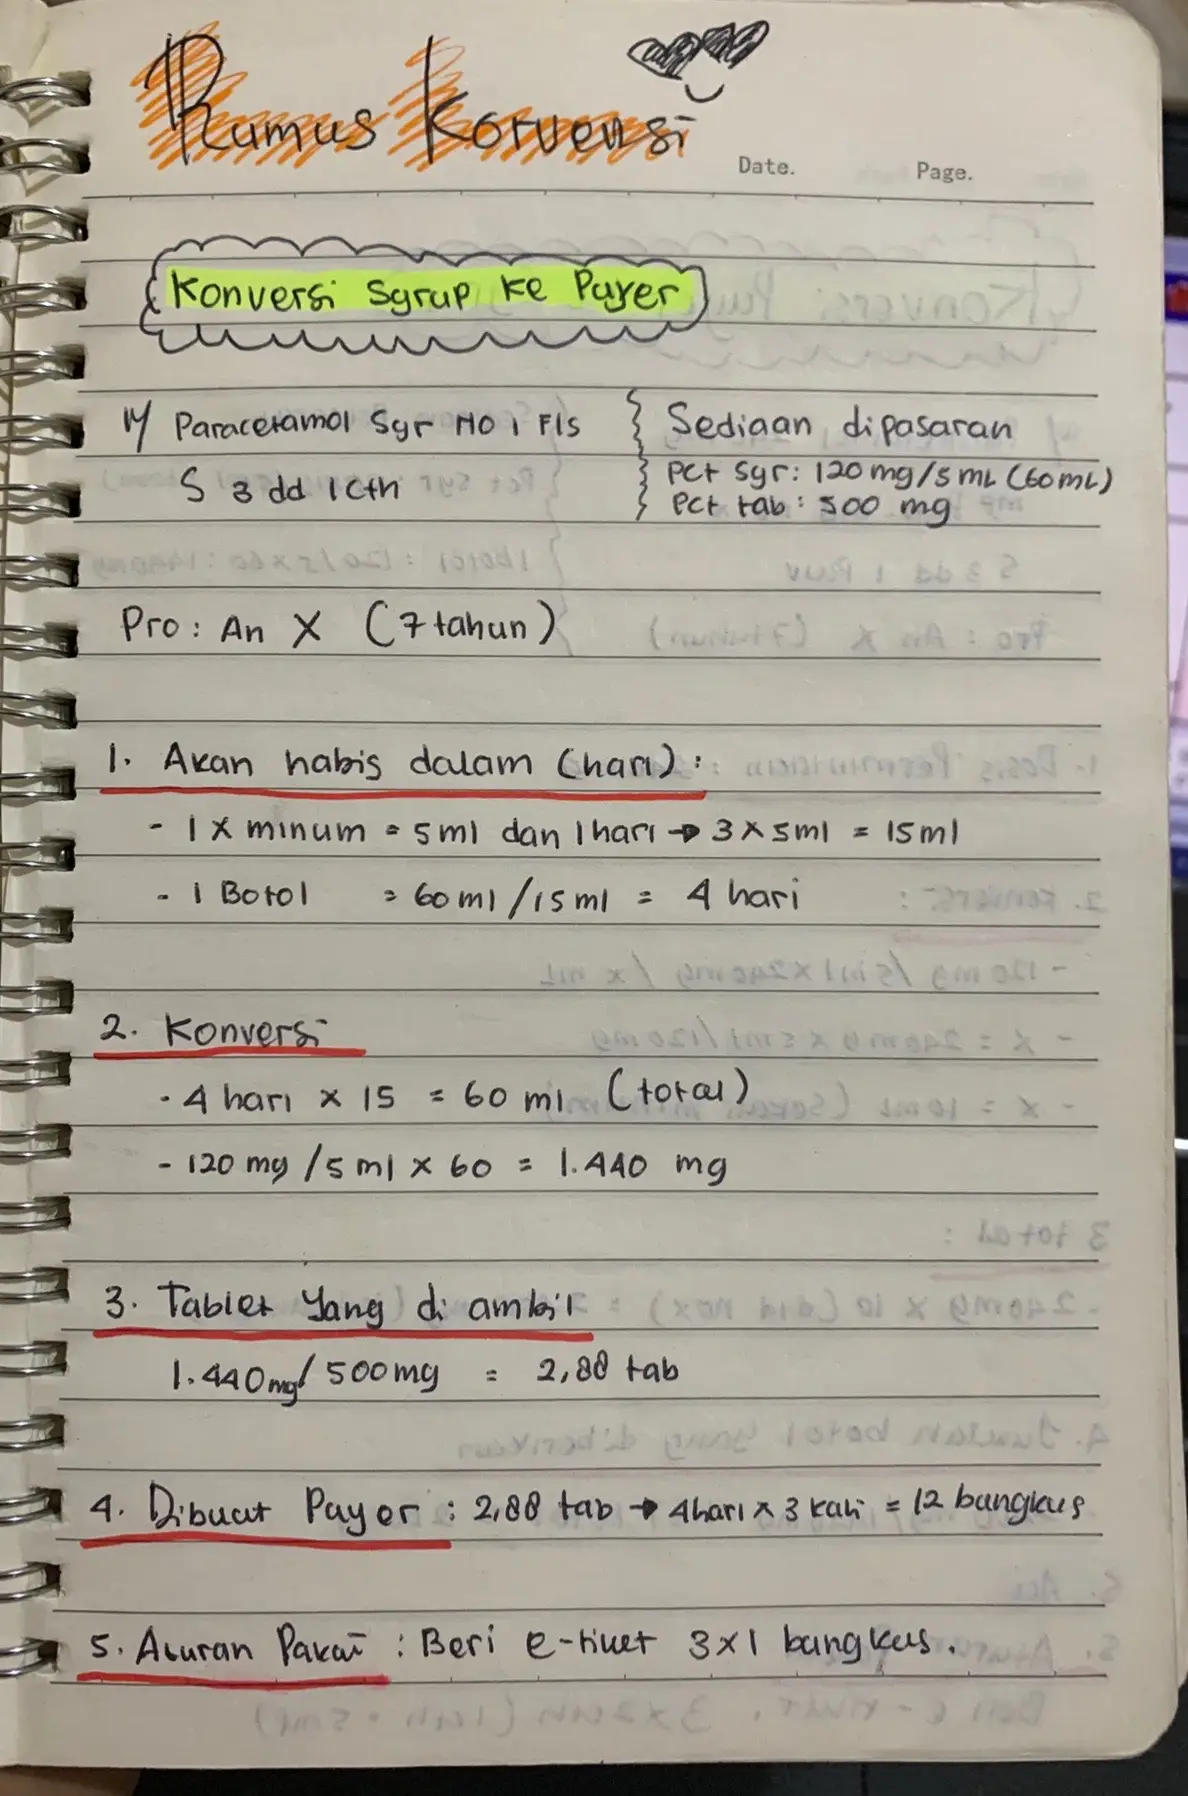 Rumus Korvensi
Date. Page.
Konversi Syrup ke Puyer
R/ Paracetamol Syr No I Fls
S 3 dd 1 Cth
Sediaan dipasaran
Pct Syr: 120 mg/5 mL (60mL)
Pct tab : 500 mg
Pro : An X (7 tahun)
1. Akan habis dalam (hari) :
- 1 x minum = 5 ml dan 1 hari → 3 x 5ml = 15 ml
- 1 Botol = 60 ml / 15 ml = 4 hari
2. Konversi
- 4 hari x 15 = 60 ml (total)
- 120 mg / 5 ml x 60 = 1.440 mg
3. Tablet Yang di ambil
1.440 mg / 500 mg = 2,88 tab
4. Dibuat Payer : 2,88 tab → 4 hari x 3 kali = 12 bungkus
5. Aturan Pakai : Beri e-tiket 3x1 bungkus.